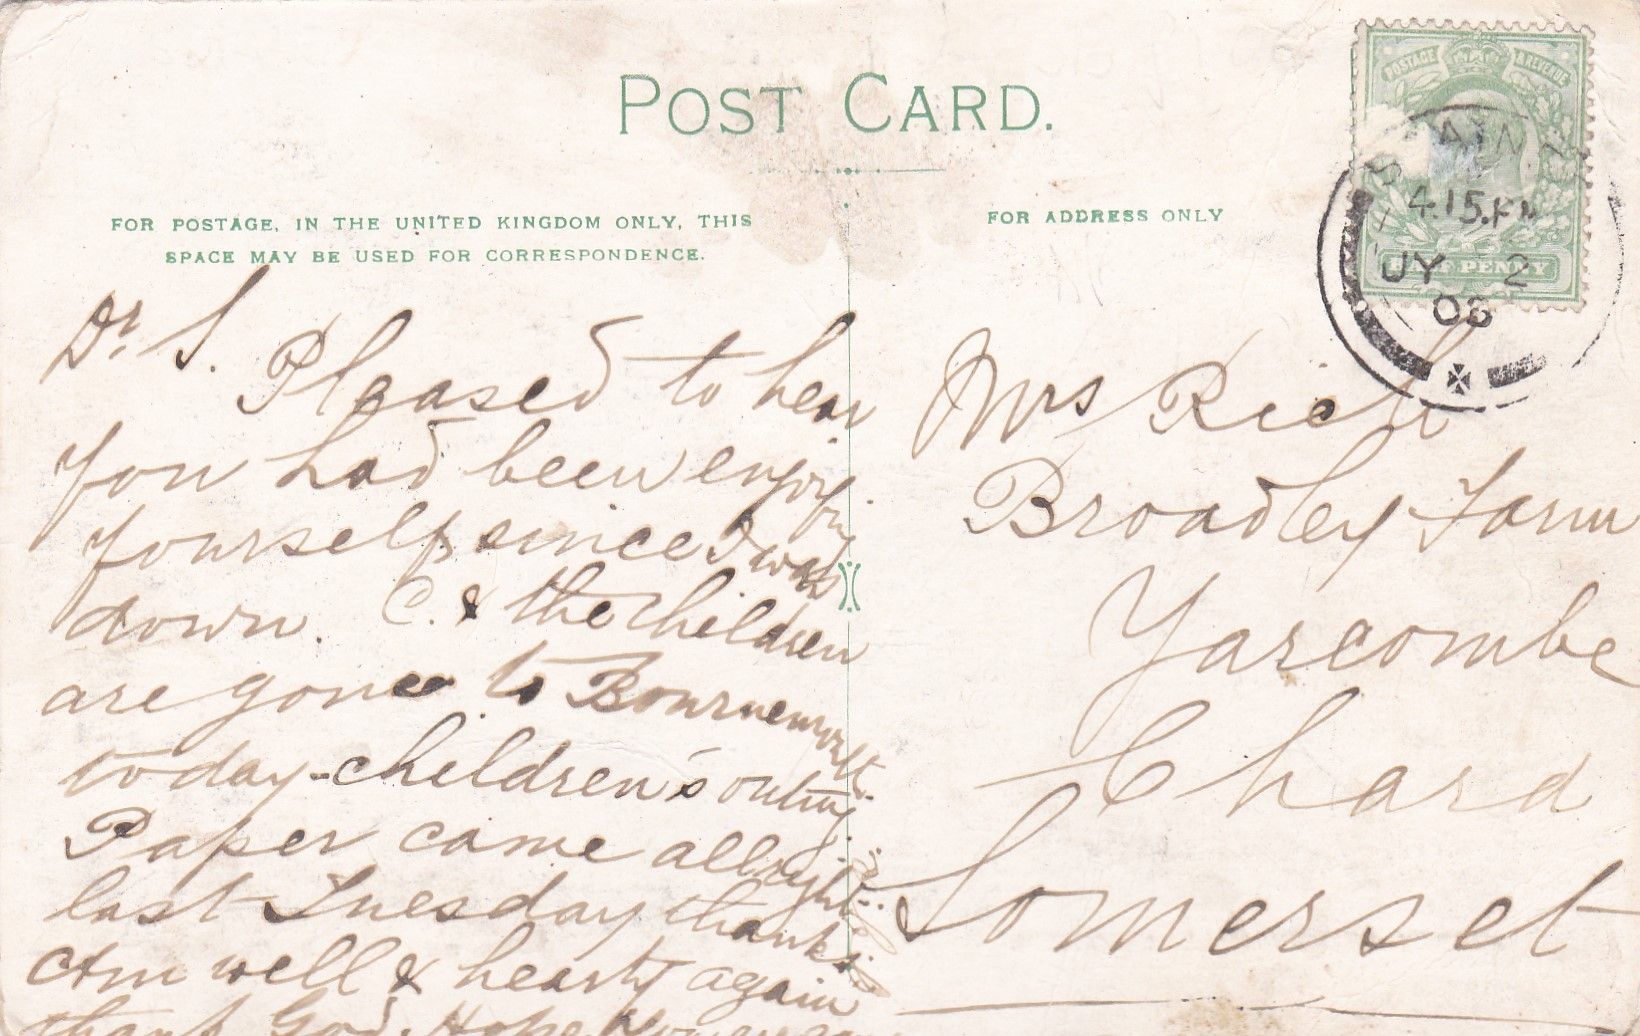 POST CARD.
FOR POSTAGE, IN THE UNITED KINGDOM ONLY, THIS
SPACE MAY BE USED FOR CORRESPONDENCE.
FOR ADDRESS ONLY
POSTAGE & REVENUE
HALF PENNY
4.15.PM
JY 2
Dr S.
Pleased to hear
you had been enjoying
yourselfs since I was
down. C. & the children
are gone to Bournemouth
today - children's outing.
Paper came allright
last Tuesday thanks
Am well & hearty again
thank God. Hope
Mrs Rich
Broadley Farm
Yarcombe
Chard
Somerset